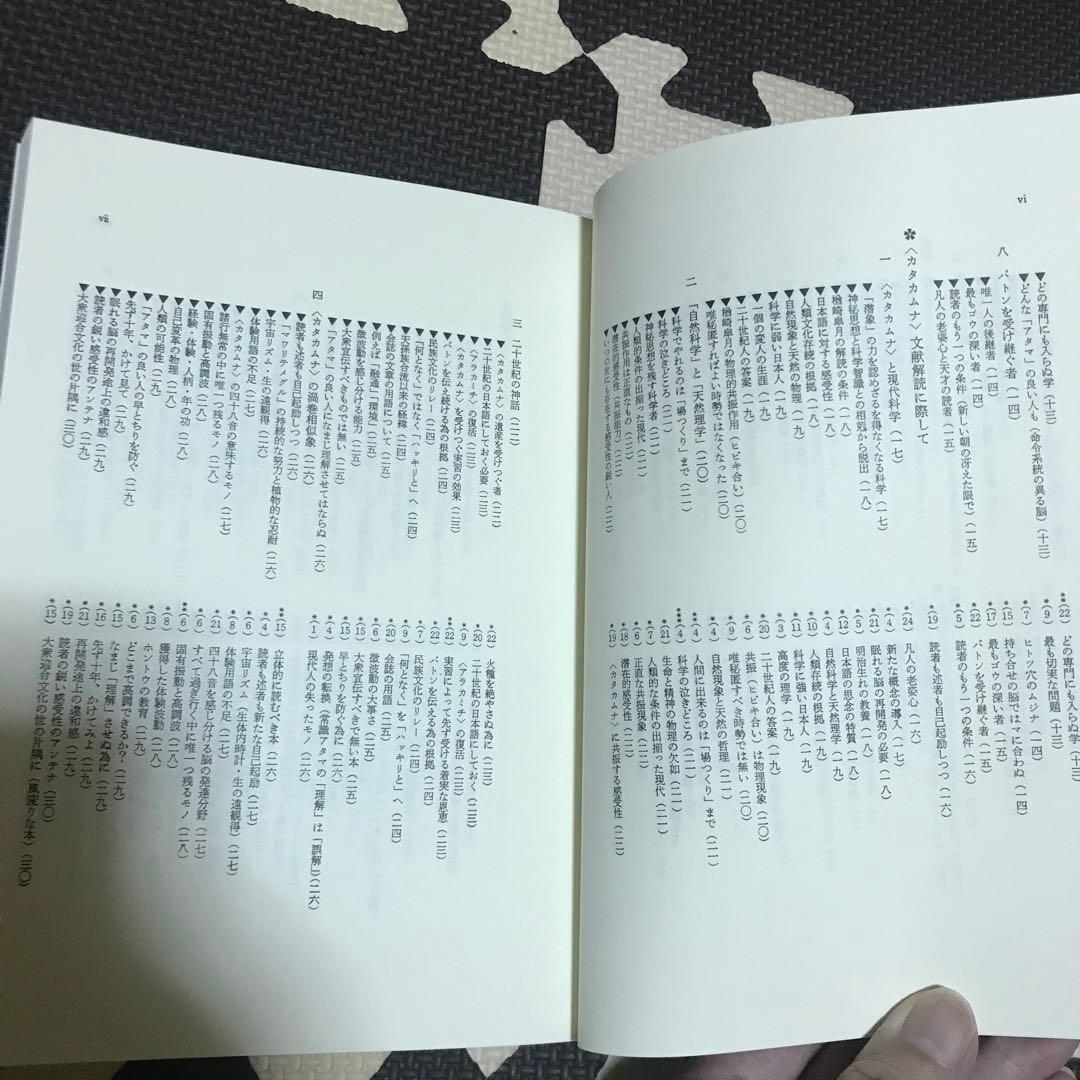 vi
▼どの専門にも入らぬ学(十三)
▼どんな「アタマ」の良い人も(命令系統の異る脳)(十三)
八 バトンを受け継ぐ者(一四)
▼唯一人の後継者(一四)
▼最もゴウの深い者(一四)
▼読者のもう一つの条件(新しい朝の冴えた眼で)(一五)
▼凡人の老姿心と天才の読者(一五)
〈カタカムナ〉文献解読に際して
一 〈カタカムナ〉と現代科学(一七)
▼「潜象」の力を認めざるを得なくなる科学(一七)
▼神秘思想と科学智識との相剋から脱出(一八)
▼楢崎皐月の解読の条件(一八)
▼日本語に対する感受性(一八)
▼人類文化存続の根拠(一九)
▼自然現象と天然の物理(一九)
▼科学に弱い日本人(一九)
▼一個の変人の生涯(一九)
▼二十世紀人の答案(一九)
▼楢崎皐月の物理的共振作用(ヒビキ合い)(二〇)
▼唯秘匿すればよい時勢ではなくなった(二〇)
二 「自然科学」と「天然理学」(二〇)
▼科学でやれるのは「場つくり」まで(二一)
▼科学の泣きどころ(二一)
▼神秘思想を残す科学者(二一)
▼人類的条件の出揃った現代(二一)
▼共振作用は正直なもの(二二)
▼潜在的感受性(共振能力)(二二)
▼いつの世にも存在する感受性の鋭い人(二二)
**(22) どの専門にも入らぬ学(十三)
*(9) 最も切実な問題(十三)
*(7) ヒトツ穴のムジナ(一四)
*(15) 持ち合せの脳ではマに合わぬ(一四)
*(17) 最もゴウの深い者(一五)
*(22) バトンを受け継ぐ者(一五)
*(5) 読者のもう一つの条件(一六)
*(19) 読者も述者も自己起励しつつ(一六)
*(24) 凡人の老姿心(一六)
*(4) 新たな概念の導入(一七)
*(21) 眠れる脳の再開発の必要(一八)
*(5) 明治生れの教養(一八)
*(6) 日本語の思念の特質(一八)
*(4) 自然科学と天然理学(一九)
*(10) 人類存続の根拠(一九)
*(11) 科学に強い日本人(一九)
*(5) 高度の理学(一九)
*(20) 二十世紀人の答案(一九)
*(6) 共振(ヒビキ合い)は物理現象(二〇)
*(9) 唯秘匿すべき時勢では無い(二〇)
*(4) 自然現象と天然の哲理(二〇)
*(4) 人間に出来るのは「場つくり」まで(二一)
**(4) 科学の泣きどころ(二一)
*(21) 生命と精神の物理の欠如(二一)
*(7) 人類的な条件の出揃った現代(二一)
*(6) 正直な共振現象(二二)
*(18) 潜在的感受性(二二)
*(19) 〈カタカムナ〉に共振する感受性(二二)
vii
三 二十世紀の神話(二二)
▼〈カタカムナ〉の遺産を受けつぐ者(二二)
▼二十世紀の日本語にしておく必要(二三)
▼〈アラカミチ〉の復活(二三)
▼〈カタカムナ〉を受けつぐ実習の効果(二三)
▼バトンを伝え続ける為の根拠(二四)
▼民族文化のリレー(二四)
▼「何となく」ではなく「ハッキリと」へ(二四)
▼天孫族合流以来の経緯(二四)
▼会誌の文章の用語について(二五)
▼例えば「融通」「環境」(二五)
▼微波動を感じ分ける能力(二五)
▼大衆宣伝すべきものでは無い(二五)
▼「アタマ」の良い人になまじ理解させてはならぬ(二六)
四 〈カタカムナ〉の渦巻相似象(二六)
▼読者も述者も自己起励しつつ(二六)
▼「ワリテタグル」の持続的な努力と植物的な忍耐(二六)
▼宇宙リズム・生の遠観得(二六)
▼体験用語の不足(二七)
▼〈カタカムナ〉の四十八音の意味するモノ(二七)
▼諸行無常の中に唯一つ残るモノ(二七)
▼固有振動と高調波(二八)
▼経験・体験・人柄・年の功(二八)
▼自己変革の物理(二八)
▼人類の可能性(二九)
▼「アタマ」の良い人の早とちりを防ぐ(二九)
▼先ず十年、かけて見て(二九)
▼眠れる脳の再開発途上の違和感(二九)
▼読者の鋭い感受性のアンテナ(二九)
▼大衆迎合文化の世の片隅に(三〇)
*(22) 火種を絶やさぬ為に(二三)
*(20) 二十世紀の日本語にしておく(二三)
*(9) 〈アラカミチ〉の復活(二三)
**(22) 実習によって先ず受ける着実な恩恵(二三)
*(22) バトンを伝える為の根拠(二四)
*(7) 民族文化のリレー(二四)
*(9) 「何となく」を「ハッキリと」へ(二四)
*(20) 会誌の用語(二四)
*(6) 微波動の大事さ(二五)
*(15) 大衆宣伝すべきで無い本(二五)
*(15) 早とちりを防ぐ為に(二五)
*(4) 発想の転換(常識アタマの「理解」は「誤解」)(二六)
*(1) 現代人の失ったモノ(二六)
**(15) 立体的に読むべき本(二六)
*(4) 読者も述者も新たな自己起励(二六)
*(6) 宇宙リズム(生体内時計・生の遠観得)(二七)
*(8) 体験用語の不足(二七)
*(21) 四十八音を感じ分ける脳の発達分野(二七)
*(6) すべて過ぎ行く中に唯一つ残るモノ(二八)
**(6) 固有振動と高調波(二八)
*(8) 獲得した体験波動(二八)
*(13) ホントウの教育(二九)
*(6) どこまで高調できるか?(二九)
*(15) なまじ「理解」させぬ為に(二九)
*(16) 先ず十年、かけてみよ(二九)
*(21) 再開発途上の違和感(二九)
*(19) 読者の鋭い感受性のアンテナ(三〇)
*(15) 大衆迎合文化の世の片隅に(風変りな本)(三〇)